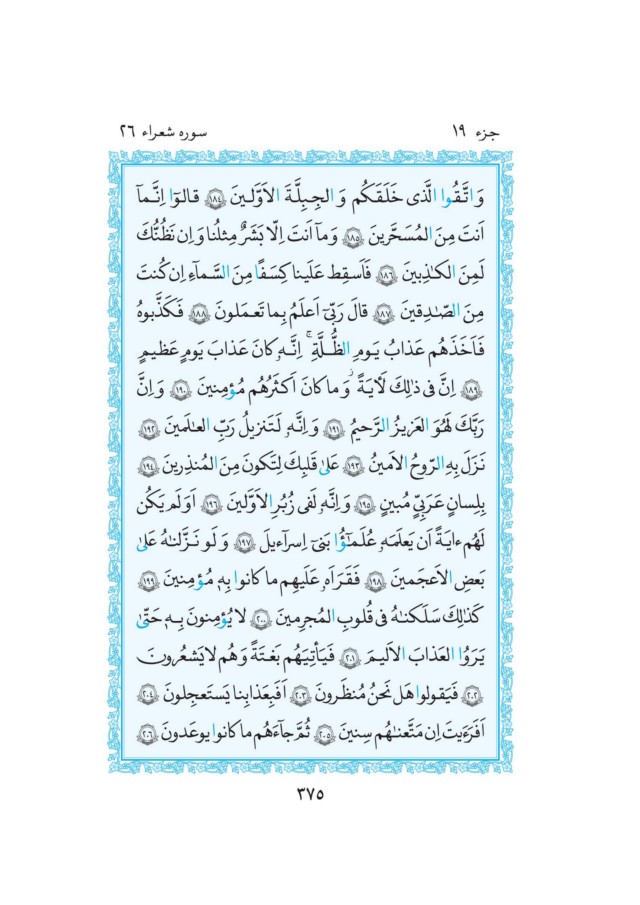 جزء ۱۹
سوره شعراء ۲۶
وَ اتَّقُوا الَّذی خَلَقَکُم وَ الجِبِلَّةَ الاَوَّلینَ ﴿۱۸۴﴾ قالوٓا اِنَّمآ
اَنتَ مِنَ المُسَحَّرینَ ﴿۱۸۵﴾ وَ مآ اَنتَ اِلّا بَشَرٌ مِثلُنا وَ اِن نَظُنُّکَ
لَمِنَ الکاذِبینَ ﴿۱۸۶﴾ فَاَسقِط عَلَینا کِسَفًا مِنَ السَّمآءِ اِن کُنتَ
مِنَ الصّٰدِقینَ ﴿۱۸۷﴾ قالَ رَبّیٓ اَعلَمُ بِما تَعمَلونَ ﴿۱۸۸﴾ فَکَذَّبوهُ
فَاَخَذَهُم عَذابُ یَومِ الظُّلَّةِ ۚ اِنَّهٗ کانَ عَذابَ یَومٍ عَظیمٍ
﴿۱۸۹﴾ اِنَّ فی ذٰلِکَ لَـٔایَةً ۖ وَ ما کانَ اَکثَرُهُم مُؤمِنینَ ﴿۱۹۰﴾ وَ اِنَّ
رَبَّکَ لَهُوَ العَزیزُ الرَّحیمُ ﴿۱۹۱﴾ وَ اِنَّهٗ لَتَنزیلُ رَبِّ العٰلَمینَ ﴿۱۹۲﴾
نَزَلَ بِهِ الرّوحُ الاَمینُ ﴿۱۹۳﴾ عَلیٰ قَلبِکَ لِتَکونَ مِنَ المُنذِرینَ ﴿۱۹۴﴾
بِلِسانٍ عَرَبیٍّ مُبینٍ ﴿۱۹۵﴾ وَ اِنَّهٗ لَفی زُبُرِ الاَوَّلینَ ﴿۱۹۶﴾ اَوَ لَم یَکُن
لَهُم ءایَةً اَن یَعلَمَهٗ عُلَمٰٓؤُا بَنیٓ اِسرآءیلَ ﴿۱۹۷﴾ وَ لَو نَزَّلنٰهُ عَلیٰ
بَعضِ الاَعجَمینَ ﴿۱۹۸﴾ فَقَرَاَهٗ عَلَیهِم ما کانوا بِهٖ مُؤمِنینَ ﴿۱۹۹﴾
کَذٰلِکَ سَلَکنٰهُ فی قُلوبِ المُجرِمینَ ﴿۲۰۰﴾ لا یُؤمِنونَ بِهٖ حَتّیٰ
یَرَوُا العَذابَ الاَلیمَ ﴿۲۰۱﴾ فَیَأتِیَهُم بَغتَةً وَ هُم لا یَشعُرونَ
﴿۲۰۲﴾ فَیَقولوا هَل نَحنُ مُنظَرونَ ﴿۲۰۳﴾ اَفَبِعَذابِنا یَستَعجِلونَ ﴿۲۰۴﴾
اَفَرَءَیتَ اِن مَتَّعنٰهُم سِنینَ ﴿۲۰۵﴾ ثُمَّ جآءَهُم ما کانوا یوعَدونَ ﴿۲۰۶﴾
۳۷۵